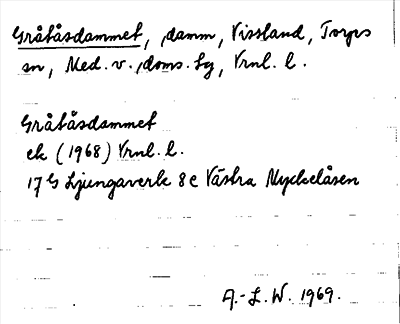 Gråtåsdammet, damm, Vissland, Torps
sn, Med. v. doms. bg, Vrnl. l.
Gråtåsdammet
ek (1968) Vrnl. l.
17 G Ljungaverk 8 c Västra Nyckelåsen
A.-L. W. 1969.